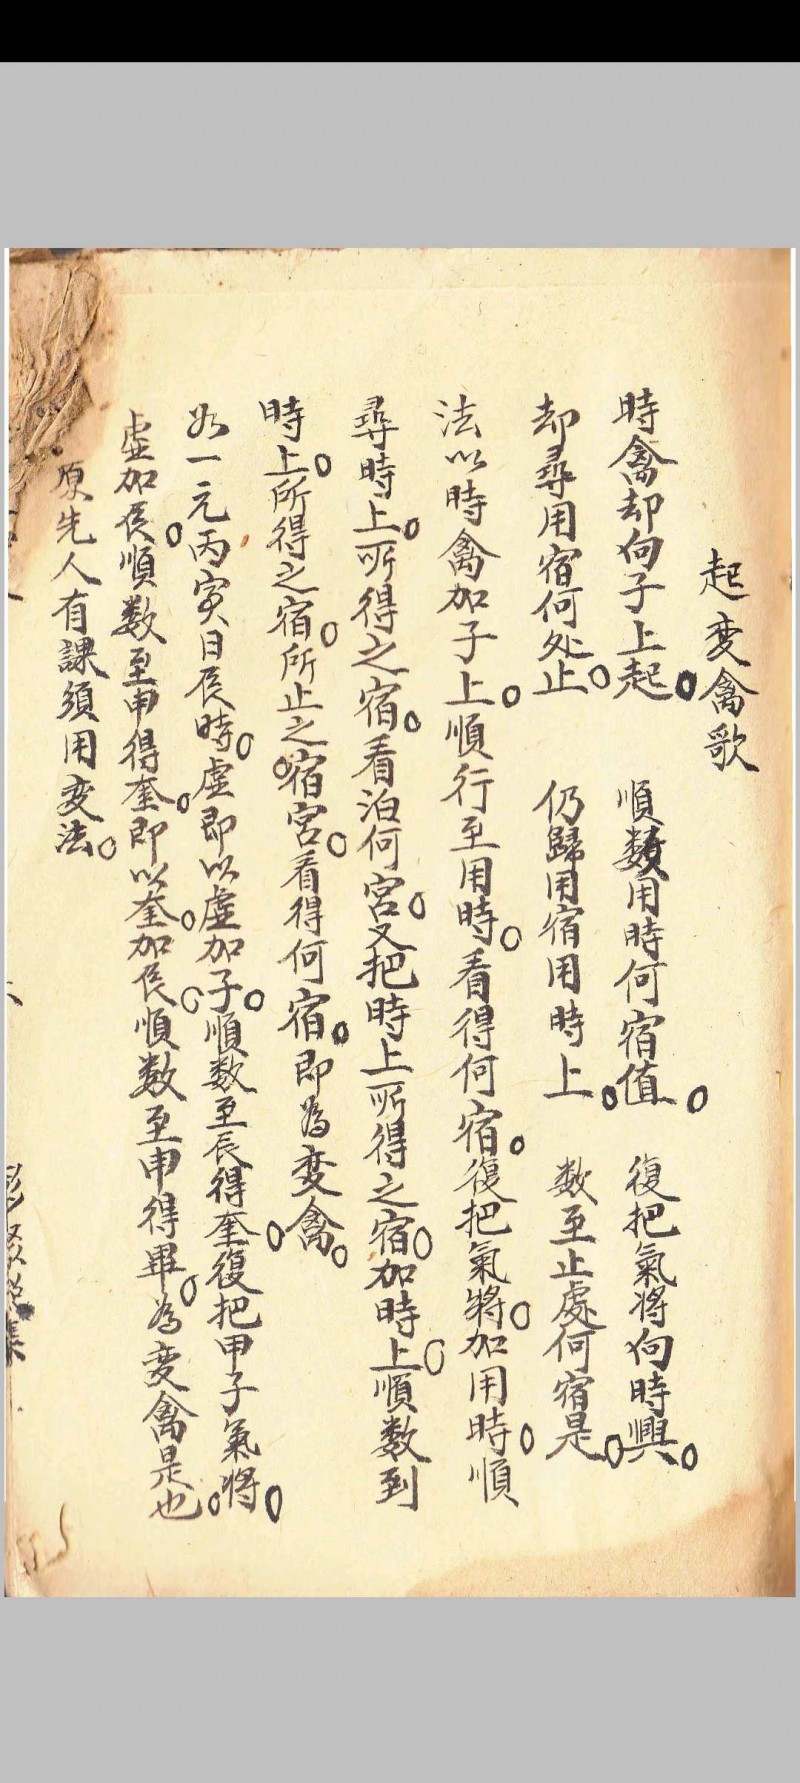 起变禽歌
時禽却向子上起。　順数用時何宿值。　復把氣將向時興。
却尋用宿何处止。　仍歸用宿用時上。　数至止處何宿是。
法以時禽加子上。順行至用時。看得何宿。復把氣將。加用時。順
尋時上。所得之宿。看泊何宮。又把時上所得之宿。加時上。順数到
時上。所得之宿。所止之宿宮。看得何宿。即為变禽。
如一元丙寅日辰時。虛即以虛加子。順数至辰得奎。復把甲子氣将。
虛加辰。順数至申得奎。即以奎。加辰。順数至申得畢。為变禽是也。
原先人有課須用变法。